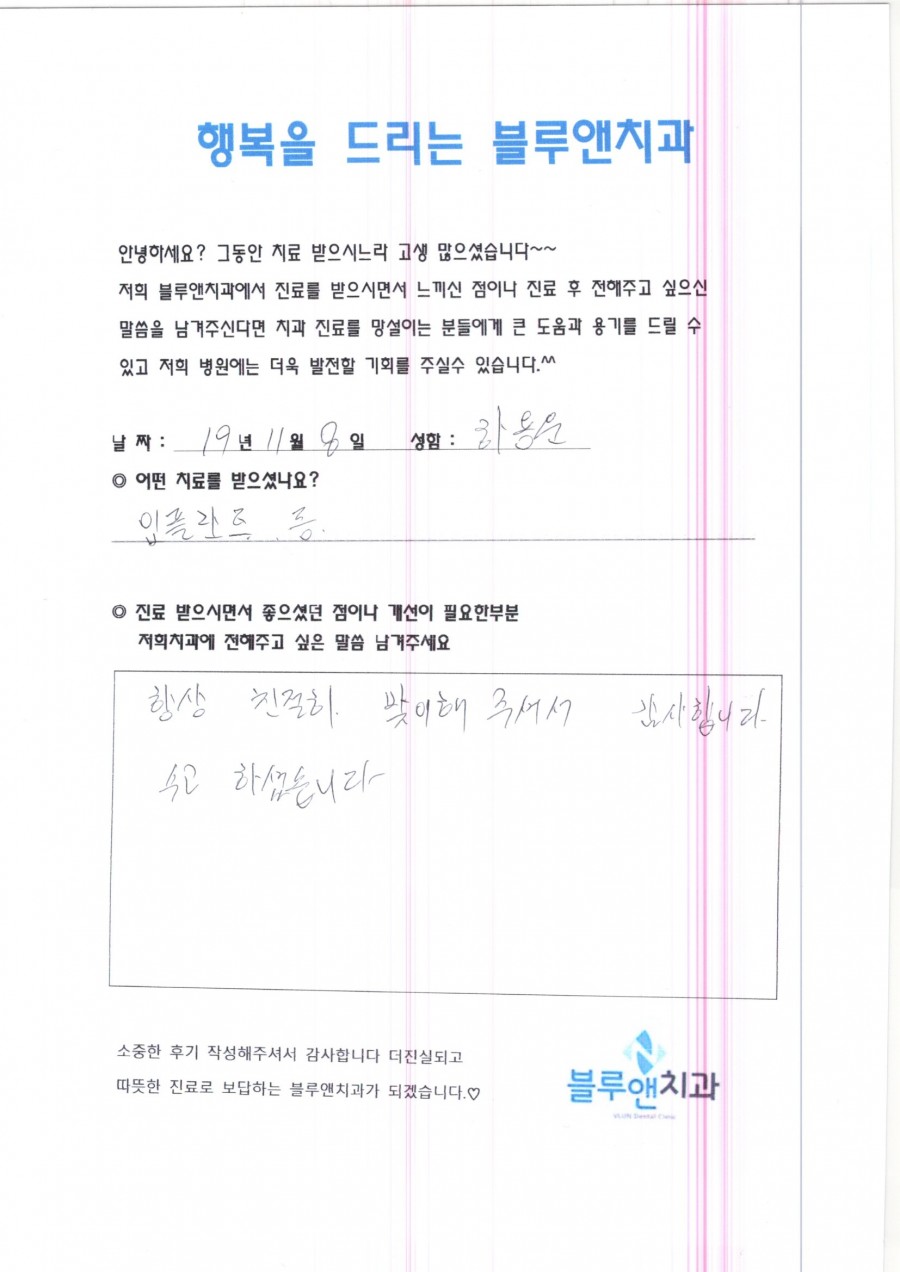 행복을 드리는 블루앤치과
안녕하세요? 그동안 치료 받으시느라 고생 많으셨습니다~~
저희 블루앤치과에서 진료를 받으시면서 느끼신 점이나 진료 후 전해주고 싶으신
말씀을 남겨주신다면 치과 진료를 망설이는 분들에게 큰 도움과 용기를 드릴 수
있고 저희 병원에는 더욱 발전할 기회를 주실수 있습니다.^^
날 짜 : 19년 11월 8일 성함 : 하용운
◎ 어떤 치료를 받으셨나요?
임플란트 등.
◎ 진료 받으시면서 좋으셨던 점이나 개선이 필요한부분
저희치과에 전해주고 싶은 말씀 남겨주세요
항상 친절히 맞이해 주셔서 감사합니다.
수고 하셨습니다
소중한 후기 작성해주셔서 감사합니다 더진실되고
따뜻한 진료로 보답하는 블루앤치과가 되겠습니다.♡
블루앤치과